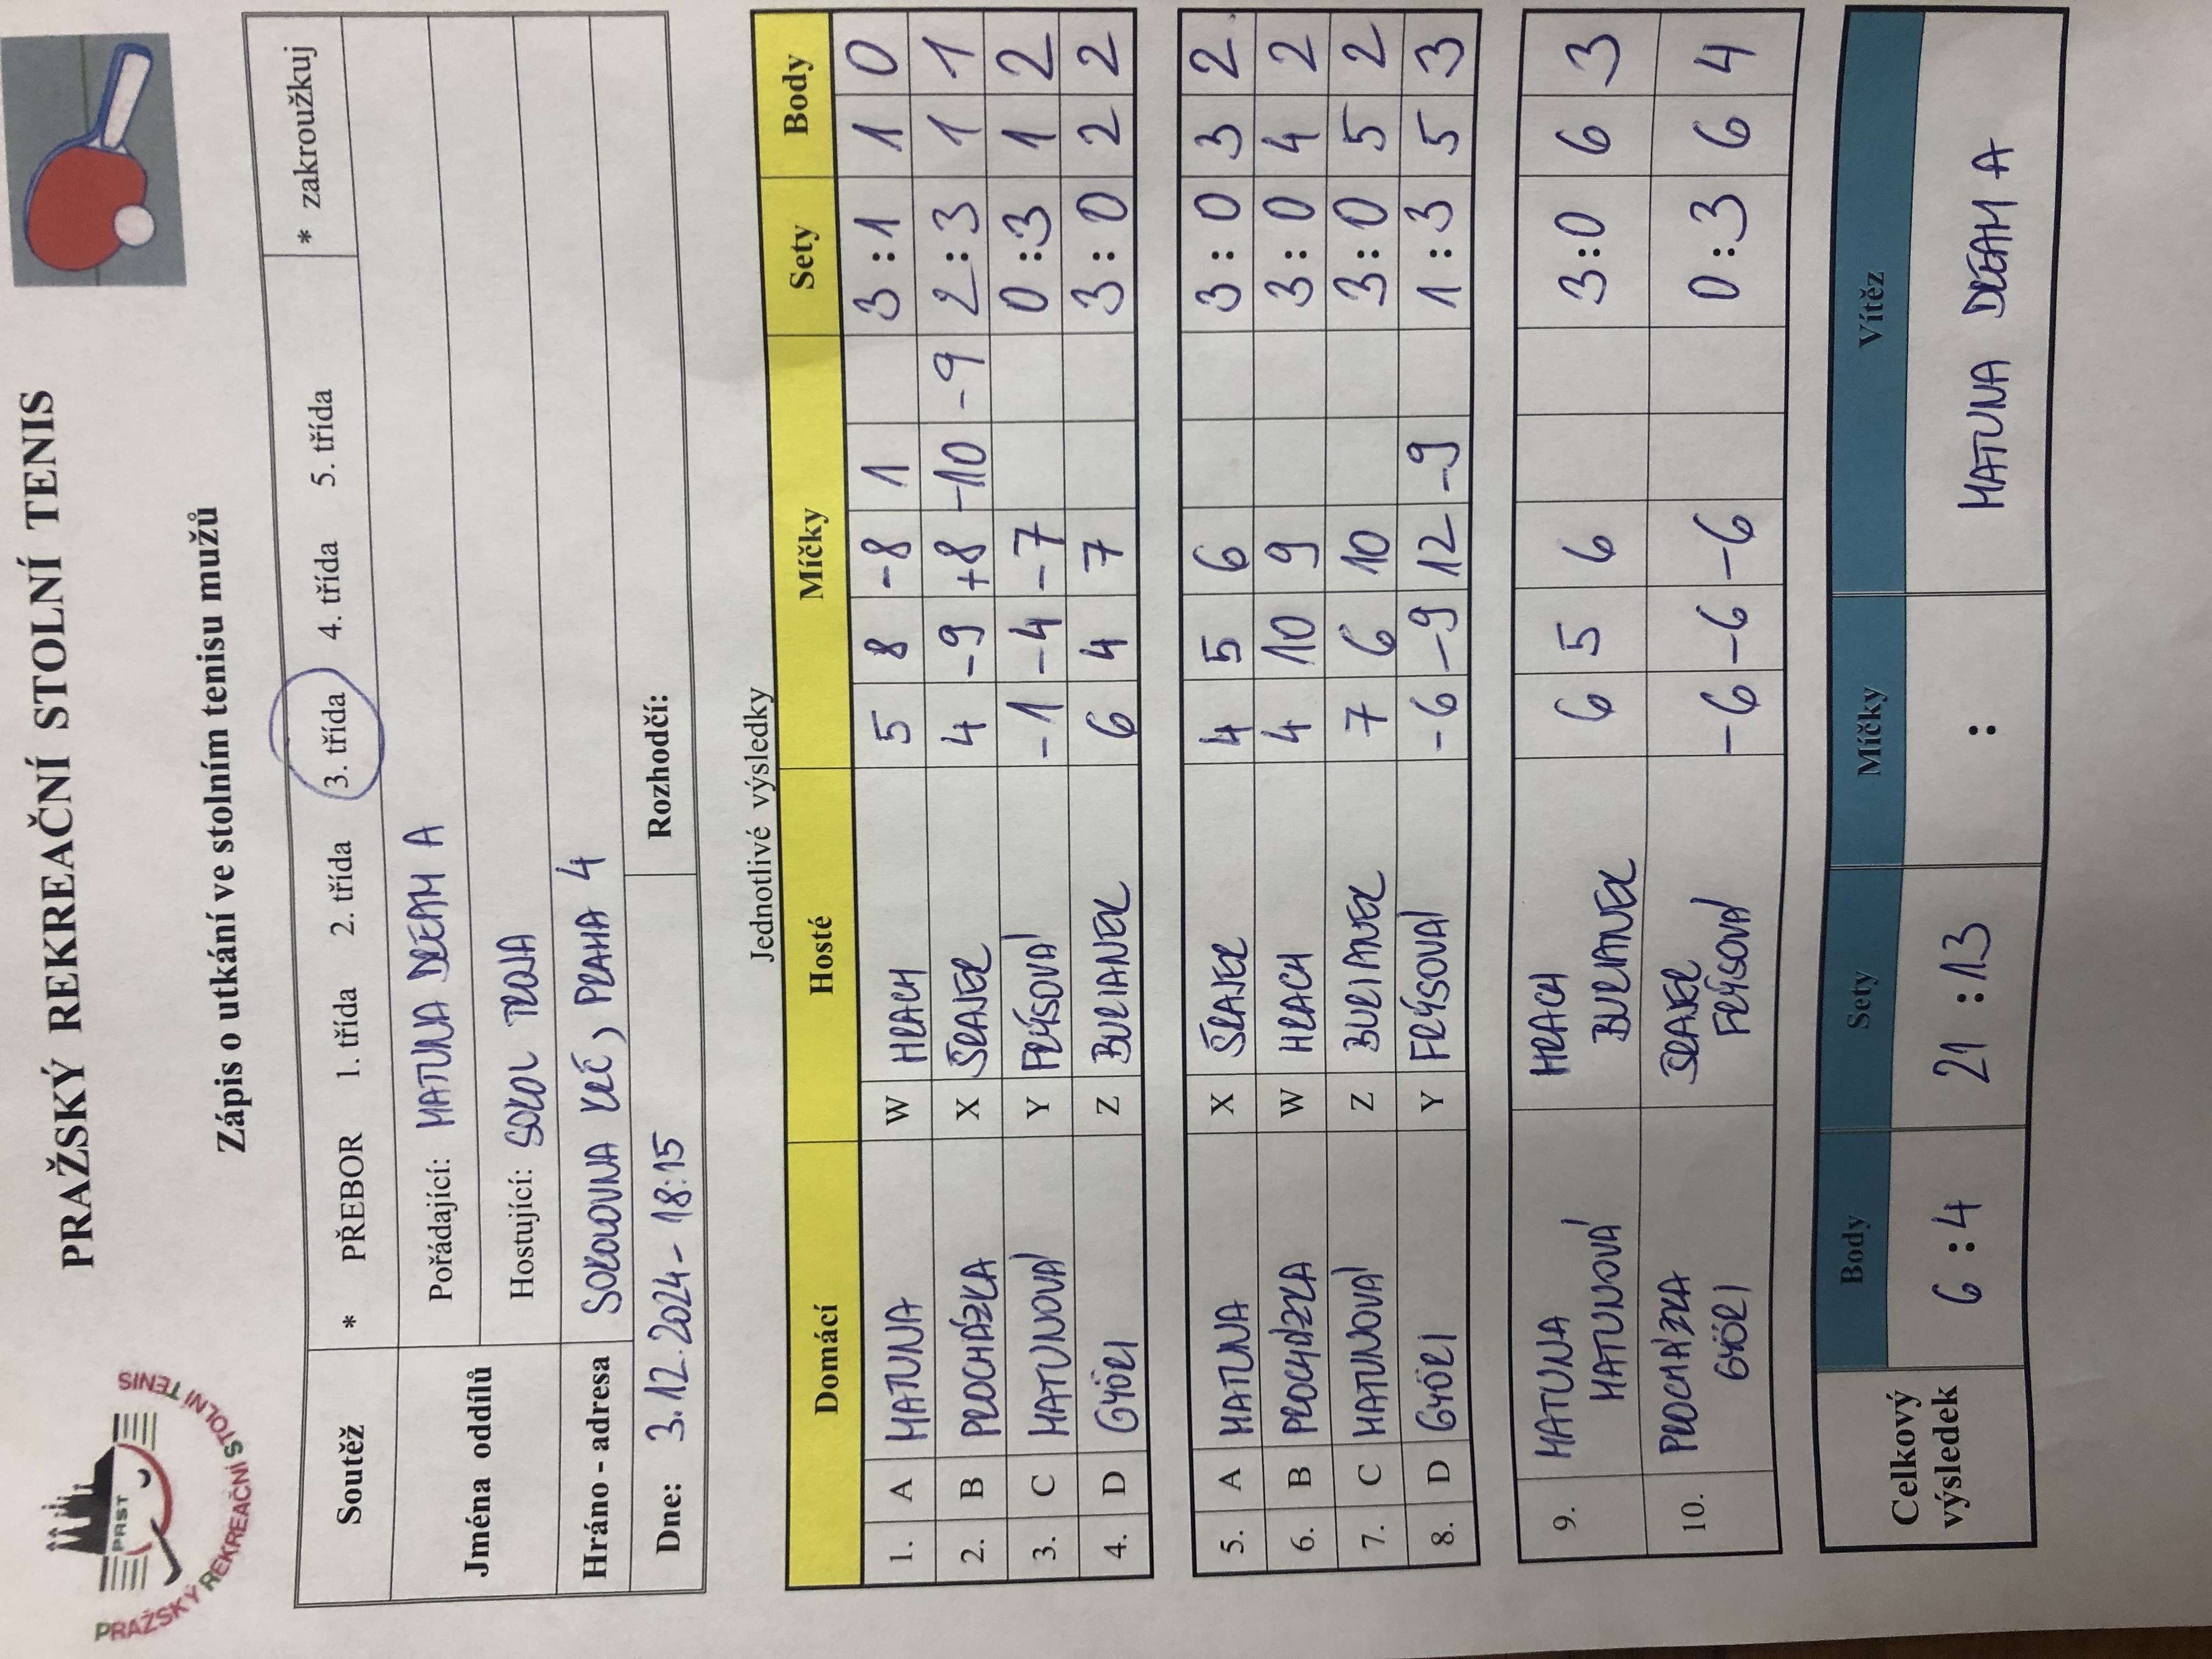 PRAŽSKÝ REKREAČNÍ STOLNÍ TENIS
PRST
PRAŽSKÝ REKREAČNÍ STOLNÍ TENIS
Zápis o utkání ve stolním tenisu mužů
Soutěž * PŘEBOR 1. třída 2. třída 3. třída 4. třída 5. třída * zakroužkuj
Jména oddílů Pořádající: MATUNA DREAM A
Hostující: SOKOL TROJA
Hráno - adresa SOKOLOVNA KRČ, PRAHA 4
Dne: 3.12.2024 - 18:15 Rozhodčí:
Jednotlivé výsledky
Domácí Hosté Míčky Sety Body
1. A MATUNA W HRACH 5 8 -8 1 3 : 1 1 0
2. B PROCHÁZKA X ŠRAJER 4 -9 +8 -10 -9 2 : 3 1 1
3. C MATUNOVÁ Y FRÝSOVÁ -1 -4 -7 0 : 3 1 2
4. D GYÖRI Z BURIANEK 6 4 7 3 : 0 2 2
5. A MATUNA X ŠRAJER 4 5 6 3 : 0 3 2
6. B PROCHÁZKA W HRACH 4 10 9 3 : 0 4 2
7. C MATUNOVÁ Z BURIANEK 7 6 10 3 : 0 5 2
8. D GYÖRI Y FRÝSOVÁ -6 -9 12 -9 1 : 3 5 3
9. MATUNA HRACH 6 5 6 3:0 6 3
MATUNOVÁ BURIANEK
10. PROCHÁZKA ŠRAJER -6 -6 -6 0 : 3 6 4
GYÖRI FRÝSOVÁ
Celkový výsledek Body Sety Míčky Vítěz
6 : 4 21 : 13 : MATUNA DREAM A